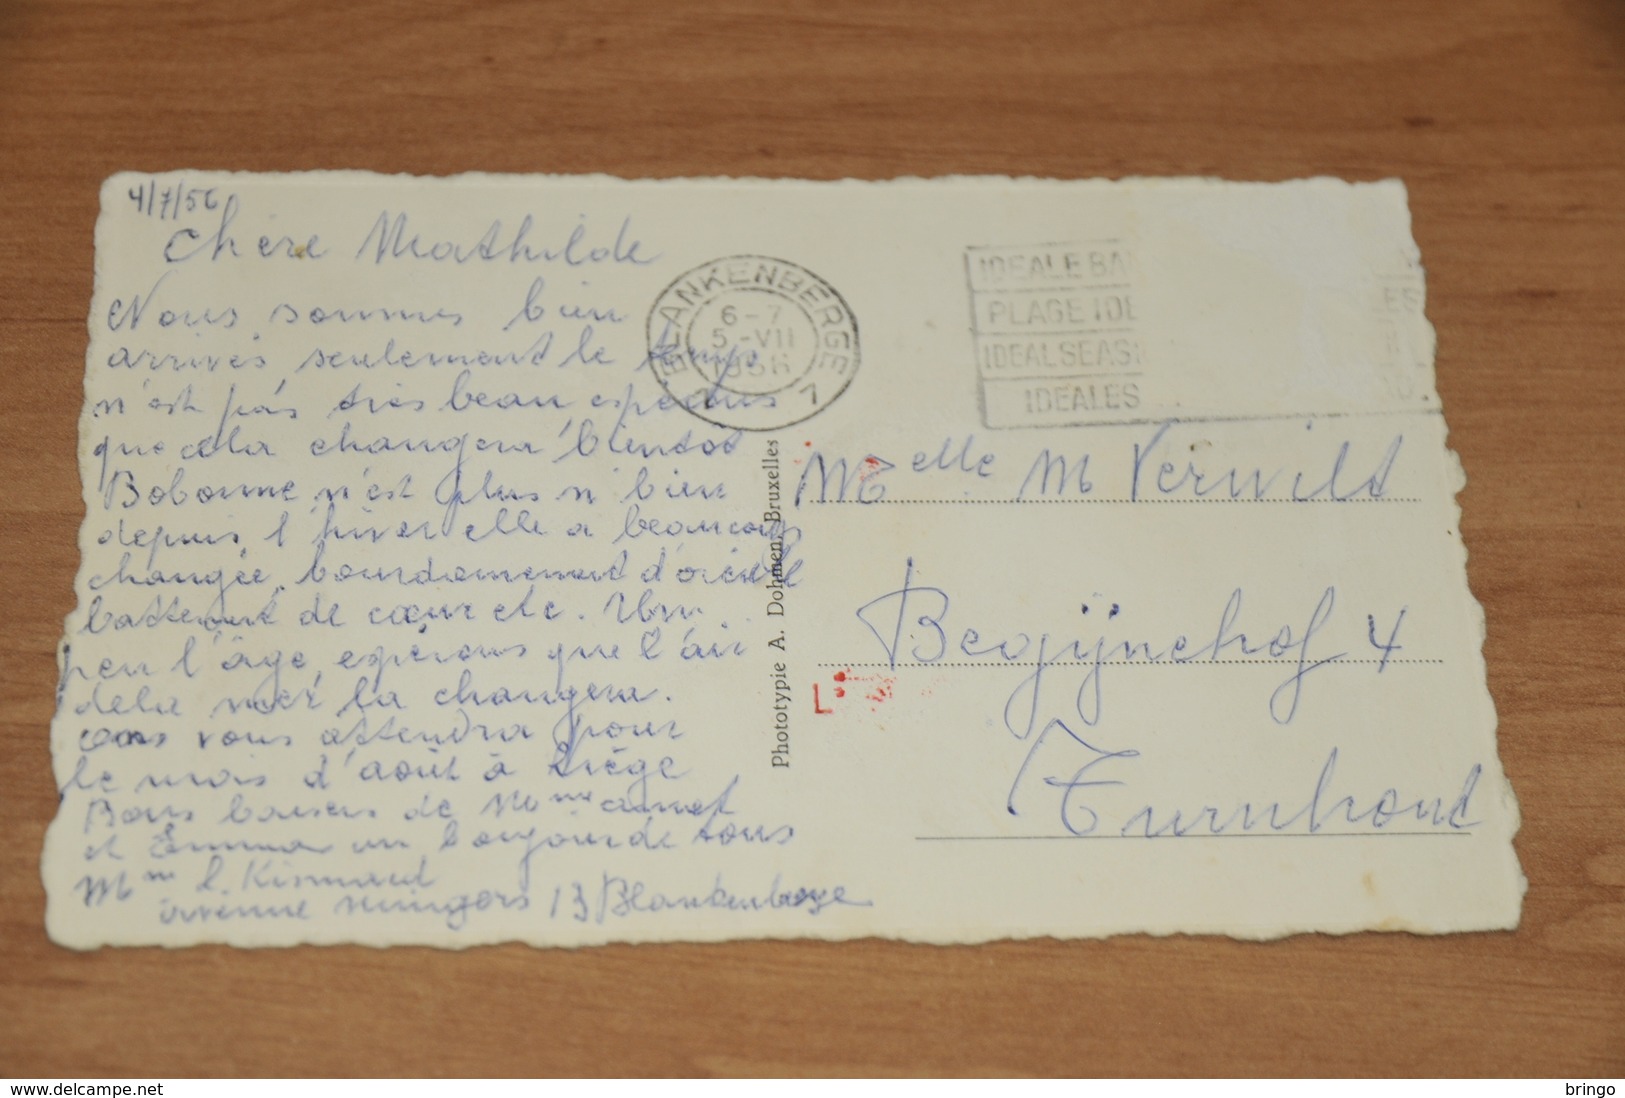 4/7/56
Chère Mathilde
Nous sommes bien
arrivés, seulement le temps
n'est pas très beau, espérons
que cela changera bientot
Bobonne n'est plus si bien
depuis l'hiver elle a beaucoup
changée, bourdonnement d'oreille
battement de cœur etc. Un
peu l'âge, espérons que l'air
dela mer la changera.
vous attendra pour
le mois d'août à Liège
Bons baisers de Mme
et Emma un bonjour de tous
Mme l.
avenue 13 Blankenberge
BLANKENBERGE
6-7
5-VII
1956
1 1
IDEALE BA
PLAGE IDE
IDEAL SEAS
IDEALES
ES
Phototypie A. Dohmen, Bruxelles
Melle M Verwilt
Begijnehof 4
Turnhout
www.delcampe.net
bringo